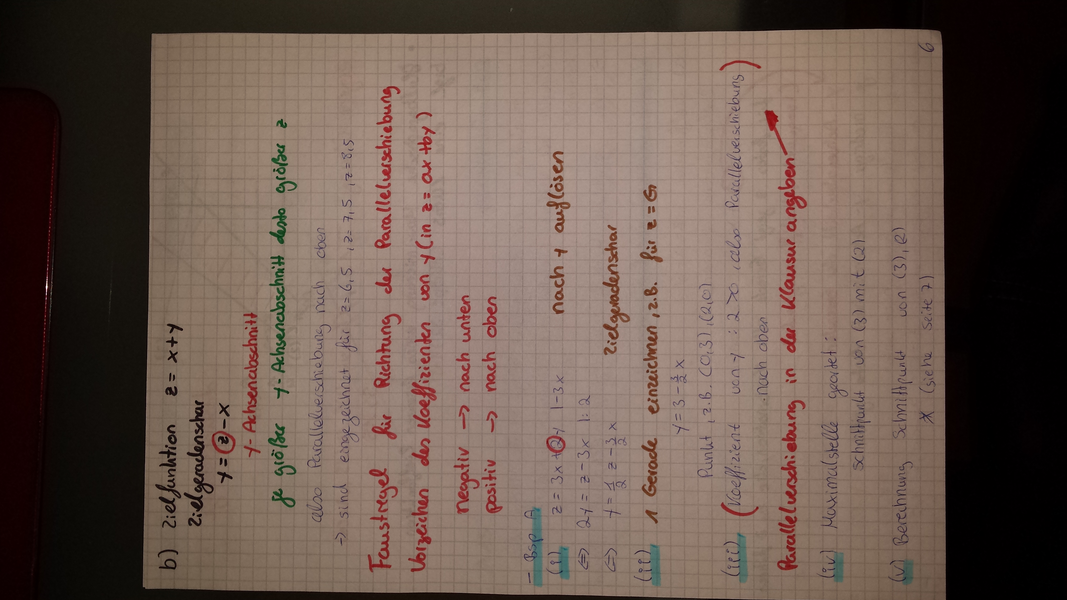 b) Zielfunktion z = x+y
Zielgeradenschar
y = z - x
y-Achsenabschnitt
je größer y-Achsenabschnitt desto größer z
also Parallelverschiebung nach oben
→ sind eingezeichnet für z=6,5, z=7,5, z=8,5
Faustregel für Richtung der Parallelverschiebung
Vorzeichen des Koeffizienten von y (in z = ax+by)
negativ → nach unten
positiv → nach oben
- Bsp A
(i) z = 3x+2y |-3x nach y auflösen
⇔ 2y = z - 3x |:2
⇔ y = 1/2 z - 3/2 x Zielgeradenschar
(ii) 1 Gerade einzeichnen, z.B. für z=6
y = 3 - 3/2 x
Punkt, z.B. (0,3), (2,0)
(iii) (Koeffizient von y : 2 >0, also Parallelverschiebung)
nach oben
Parallelverschiebung in der Klausur angeben
(iv) Maximalstelle geortet:
Schnittpunkt von (3) mit (2)
(v) Berechnung Schnittpunkt von (3), (2)
* (siehe Seite 7)
6